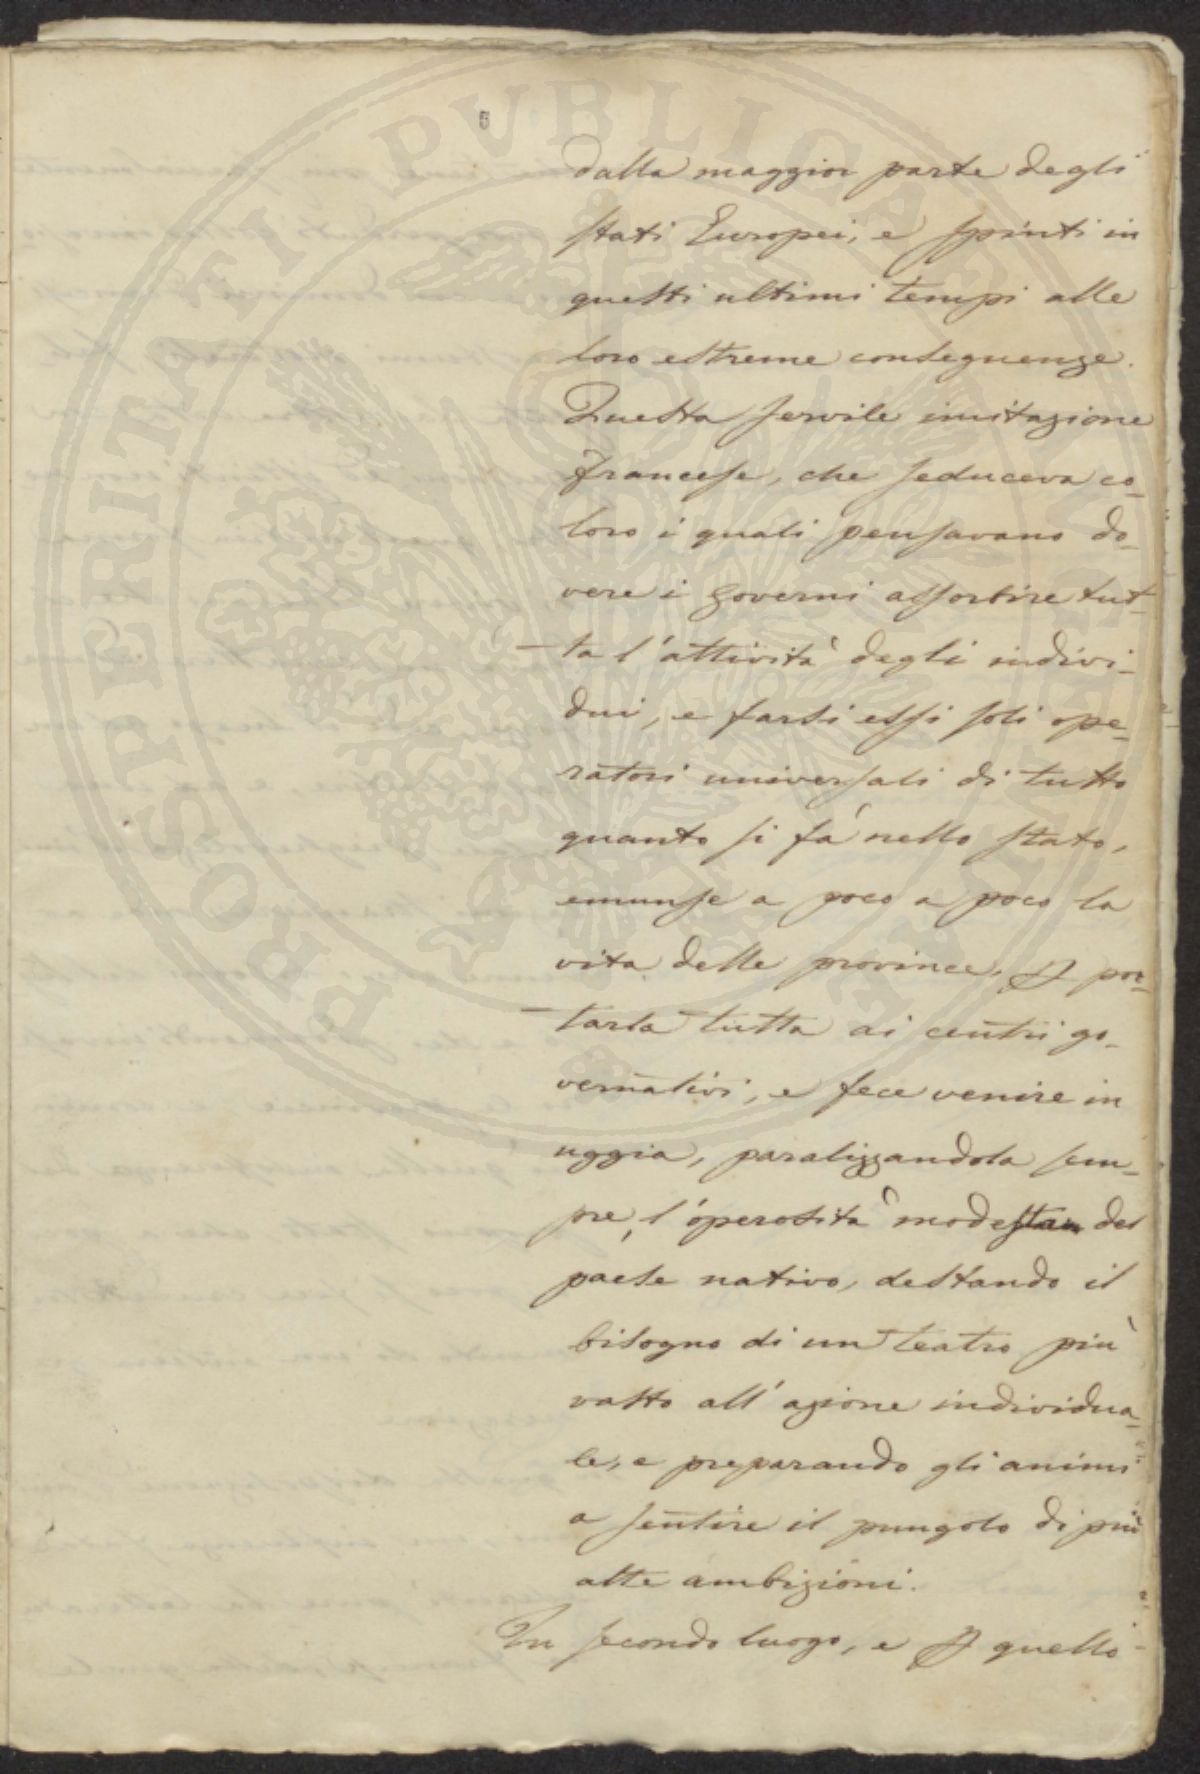 5
dalla maggior parte degli
stati Europei, e spinti in
questi ultimi tempi alle
loro estreme conseguenze.
Questa servile imitazione
francese, che seduceva co-
loro i quali pensavano do-
vere i governi assorbire tut-
ta l'attività degli indivi-
dui, e farsi essi soli ope-
ratori universali di tutto
quanto si fà nello stato,
emunse a poco a poco la
vita delle province, p por-
tarla tutta ai centri go-
vernativi, e fece venire in
uggia, paralizzandola sem-
pre, l'operosità modesta del
paese nativo, destando il
bisogno di un teatro più
vasto all'azione individua-
le, e preparando gli animi
a sentire il pungolo di più
alte ambizioni.
In secondo luogo, e p quello
PROSPERITATI PUBLICAE AUGENDAE